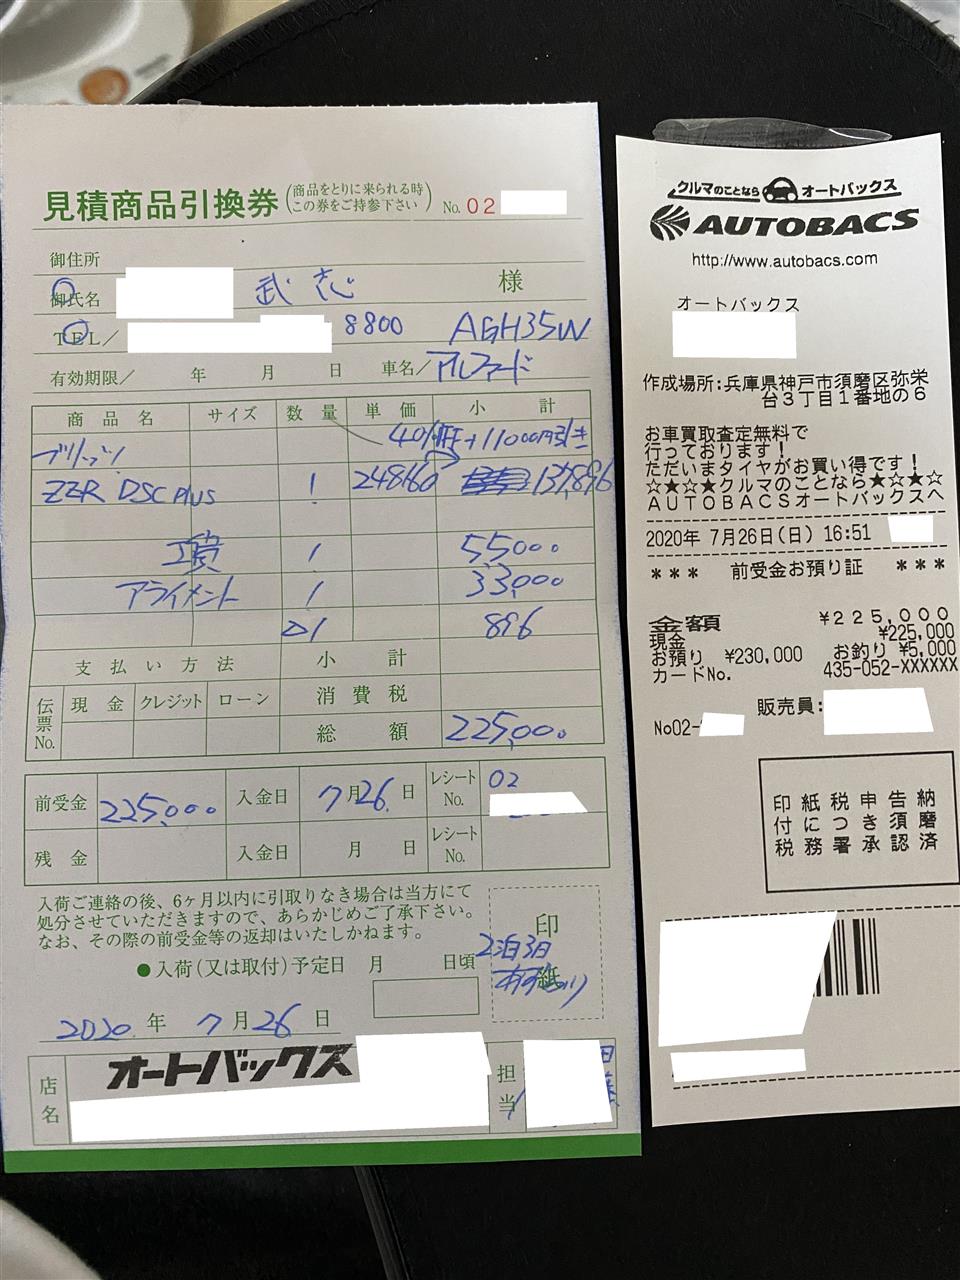 見積商品引換券(商品をとりに来られる時 この券をご持参下さい) No. 02
御住所
御氏名 武 様
TEL/ 8800 AGH35W
有効期限/ 年 月 日 車名/アルファード
商品名 サイズ 数量 単価 小計
ブリッツ 40%OFF+11000円引き
ZZR DSC Plus 1 248160 137,896
工賃 1 55000
アライメント 1 33,000
△1 896
支払い方法 小計
伝票No. 現金 クレジット ローン 消費税
総額 225,000
前受金 225,000 入金日 7月26日 レシートNo. 02
残金 入金日 月 日 レシートNo.
入荷ご連絡の後、6ヶ月以内に引取りなき場合は当方にて
処分させていただきますので、あらかじめご了承下さい。
なお、その際の前受金等の返却はいたしかねます。
●入荷(又は取付)予定日 月 日頃
印紙
2泊3日
2020年 7月26日
店名 オートバックス 担当
クルマのことなら オートバックス
AUTOBACS
http://www.autobacs.com
オートバックス
作成場所:兵庫県神戸市須磨区弥栄
台3丁目1番地の6
お車買取査定無料で
行っております!
ただいまタイヤがお買い得です!
☆★☆★クルマのことなら★☆★☆
AUTOBACSオートバックスへ
2020年 7月26日(日) 16:51
*** 前受金お預り証 ***
金額 ¥225,000
現金 ¥225,000
お預り ¥230,000 お釣り ¥5,000
カードNo. 435-052-XXXXXX
販売員:
No02-
印紙税申告納
付につき須磨
税務署承認済